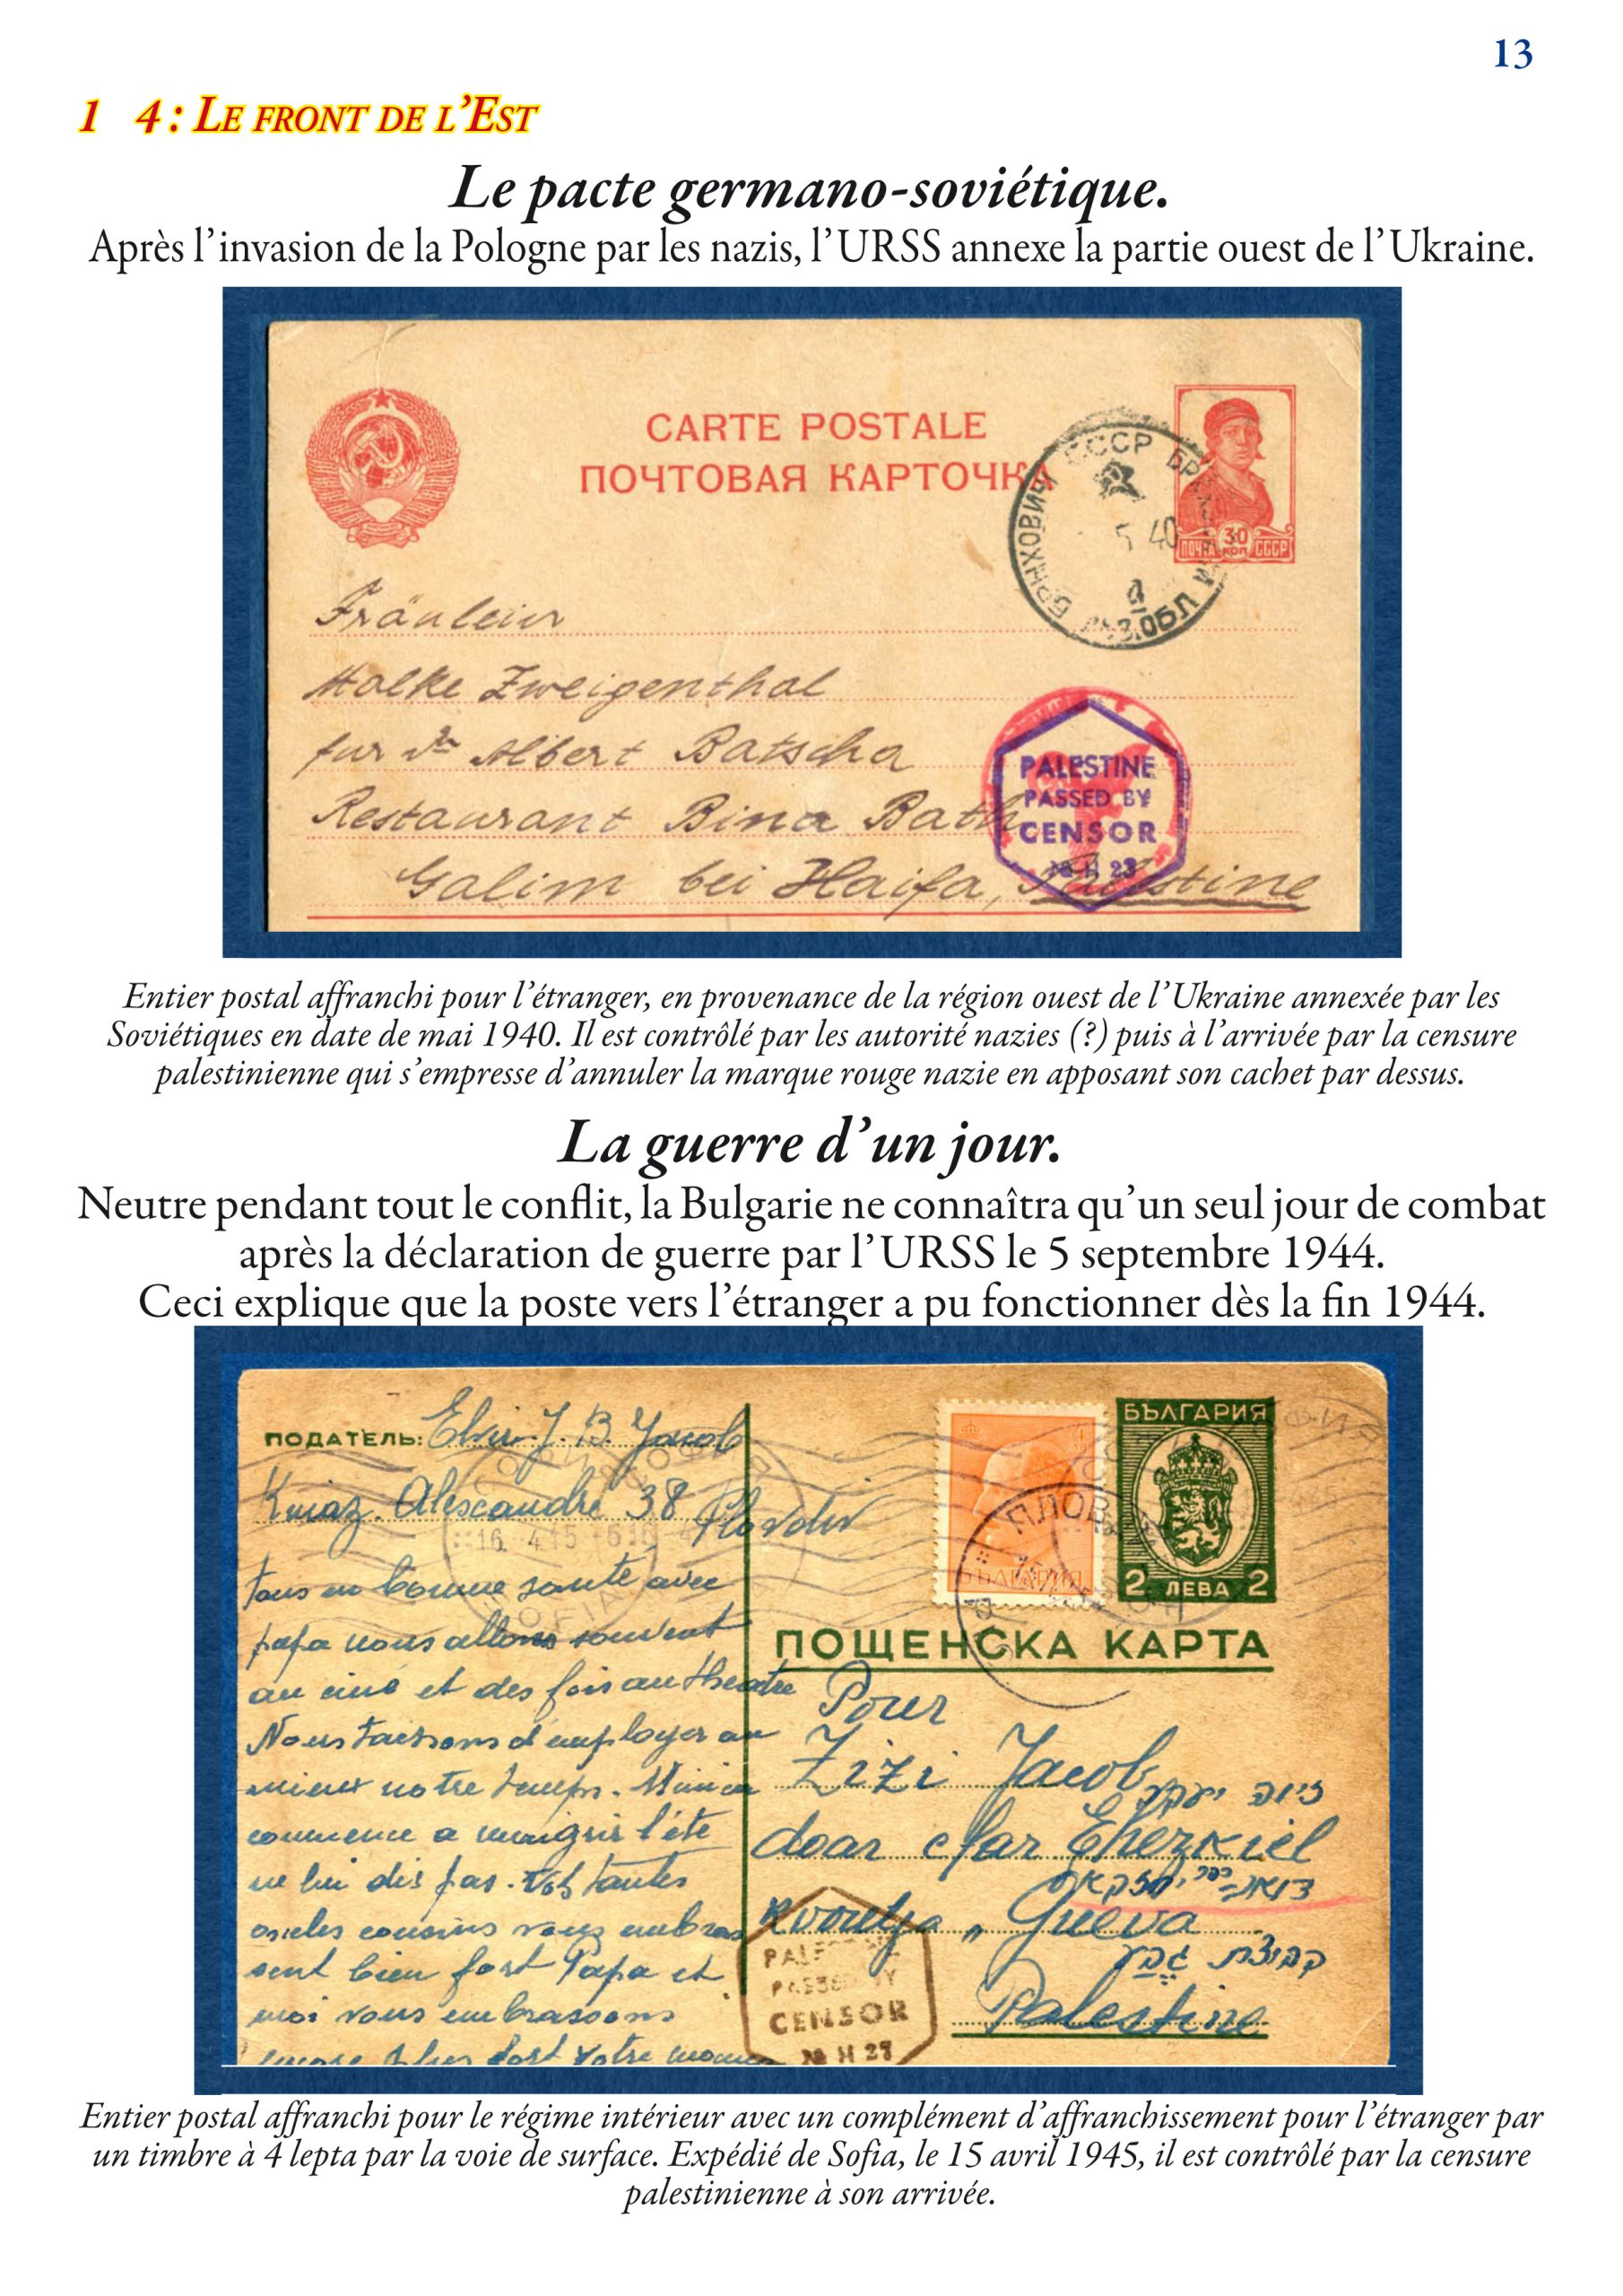 13
1 4 : Le front de l'Est
Le pacte germano-soviétique.
Après l'invasion de la Pologne par les nazis, l'URSS annexe la partie ouest de l'Ukraine.
CARTE POSTALE
ПОЧТОВАЯ КАРТОЧКА
СССР
БРЮХОВИЧИ
5 40
ПОЧТА 30 КОП. СССР
Fräulein
Malke Zweigenthal
fur Dr Albert Batscha
Restaurant Bina Bath
Galim bei Haifa, Palestine
PALESTINE
PASSED BY
CENSOR
H 23
Entier postal affranchi pour l'étranger, en provenance de la région ouest de l'Ukraine annexée par les
Soviétiques en date de mai 1940. Il est contrôlé par les autorité nazies (?) puis à l'arrivée par la censure
palestinienne qui s'empresse d'annuler la marque rouge nazie en apposant son cachet par dessus.
La guerre d'un jour.
Neutre pendant tout le conflit, la Bulgarie ne connaîtra qu'un seul jour de combat
après la déclaration de guerre par l'URSS le 5 septembre 1944.
Ceci explique que la poste vers l'étranger a pu fonctionner dès la fin 1944.
ПОДАТЕЛЬ: J. B. Jacob
Kniaz. Alexandre 38 Plovdiv
Tous en bonne santé avec
papa nous allons souvent
au ciné et des fois au theatre
Nous d'employer au
mieux notre temps.
commence a maigrir l'été
ne lui dis pas. Vos tantes
oncles cousins vous embras
sent bien fort Papa et
moi vous embrassons
plus fort votre maman
БЪЛГАРИЯ
2 ЛЕВА 2
БЪЛГАРИЯ
ПОЩЕНСКА КАРТА
Pour
Zizi Jacob
doar cfar Ehezkiel
Kvoutza „ Gueva
קבוצת גבע
Palestine
PASSED BY
CENSOR
H 27
Entier postal affranchi pour le régime intérieur avec un complément d'affranchissement pour l'étranger par
un timbre à 4 lepta par la voie de surface. Expédié de Sofia, le 15 avril 1945, il est contrôlé par la censure
palestinienne à son arrivée.